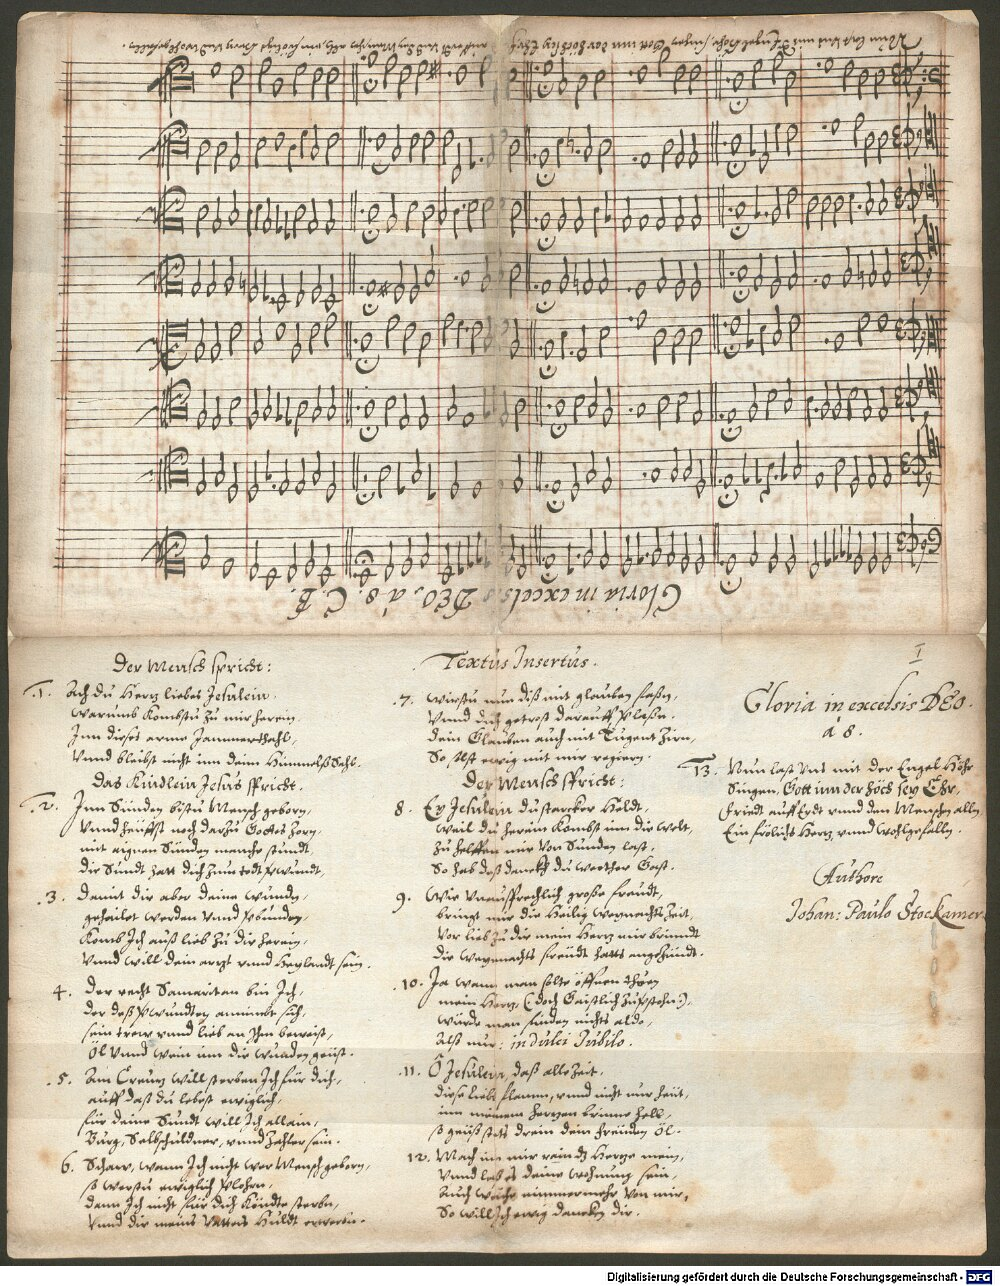 Gloria in excelsis DEO, á 8. C. B.
Nun last Uns mit der Engel Höhr singen, Gott inn der Höch sey Ehr,
Der Mensch spricht:
1. Ach du Hertz liebes Jesulein.
warumb kombstu zu mir herein,
Inn dieses arme Jammerthahl,
Unnd bleibst nicht inn deim HimmelsSahl.
Das Kindlein Jesus spricht.
2. Inn Sünden bistu Mensch geborn,
Unnd häuffst noch darzu Gottes Zorn,
mit aignen Sünden manche stundt,
die Sündt hatt dich zum todt verwundt,
3. Damit dir aber deine wunden,
geheilet werden Unnd verbunden,
Komb Ich auß lieb zu dir herein,
Unnd will dein arzt unnd Heylandt sein.
4. Der recht Samaritan bin Ich,
der deß verwundten annimbt sich,
sein trew unnd lieb an Ihm beweist,
Öl Unnd wein inn die wunden geüst.
5. Am Creutz will sterben Ich für dich,
auff daß du lebest ewiglich,
für deine Sündt will Ich allain,
Bürg, Selbschuldner, unnd Zahler sein.
6. Schaw, wann Ich nicht wer Mensch geborn,
so werstu ewiglich verlohrn,
dann Ich nicht für dich köndte sterbn,
Unnd dir meins Vatters Huldt erwerbn.
Textus Insertus.
7. Wirstu nun diß mit glauben faßn,
Unnd dich getrost darauff verlaßn,
dein Glauben auch mit Tugent ziern,
So solst ewig mit mir regiern.
Der Mensch spricht:
8. Ey Jesulein du starcker Heldt,
Weil du herein kombst inn die welt,
Zu helffen mir von Sünden last,
So hab deß danckh du werther Gast.
9. Wie Unaussprechlich große freudt,
bringt mir die Heilig Weynacht Zeit,
Vor lieb zu dir mein Hertz mir brinndt
die Weynachts freudt hatts angezündt.
10. Ja wann man solte öffnen thuen
mein Hertz, (doch Gaistlich zuverstehn:),
würde man finden nichts aldo,
Alß nur: in dulci Jubilo.
11. Ô Jesulein, daß alle Zeit.
diese liebs flamm, unnd nicht nur heüt,
inn meinem hertzen brinne hell,
so geüß stets drein dein freüden Öl.
12. Mach inn mir rain diß Hertze mein,
Unnd laß es deine wohnung sein,
Auch weiche nimmermehr von mir,
So will Ich ewig dancken dir.
I
Gloria in excelsis DEO.
á 8.
13. Nun last Uns mit der Engel Höhr
Singen, Gott inn der Höch sey Ehr,
Friedt auff Erdt unnd den Menschen alln,
Ein frölichs Hertz unnd wohlgefalln.
Authore
Johan: Paulo Stockamer.
Digitalisierung gefördert durch die Deutsche Forschungsgemeinschaft - DFG